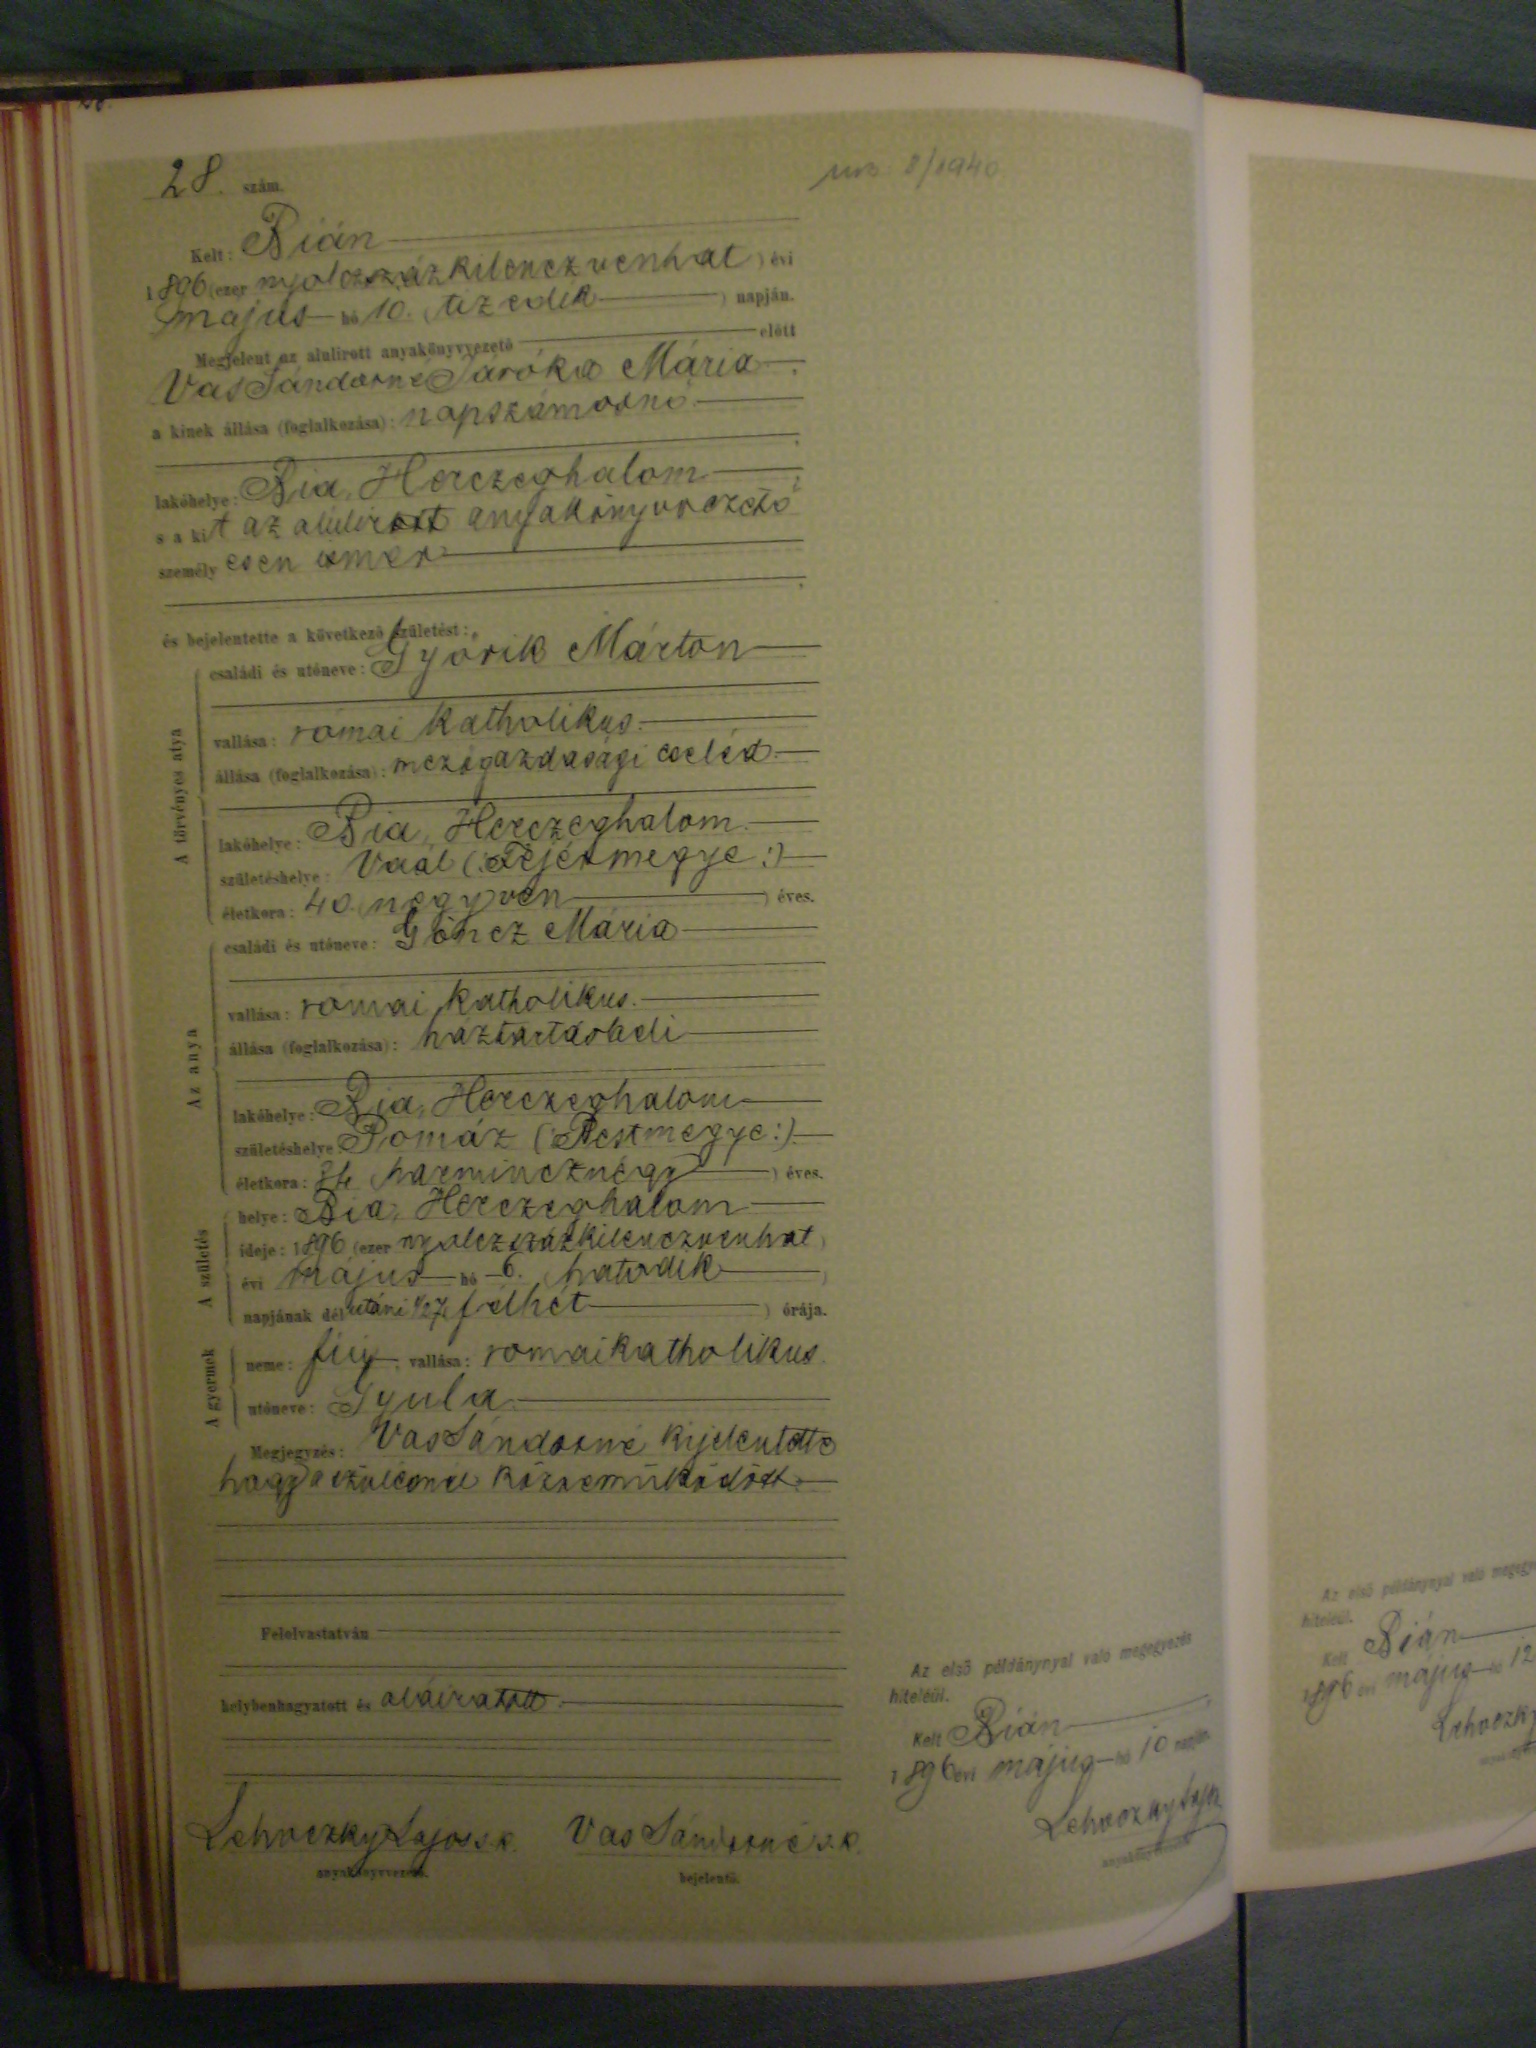 28. szám.
8/1940
Kelt: Bián
1896 (ezer nyolczszázkilenczvenhat) évi
május hó 10. (tizedik) napján.
Megjelent az alulirott anyakönyvvezető előtt
Vas Sándorné Sáróka Mária,
a kinek állása (foglalkozása): napszámosnő
lakóhelye: Bia, Herczeghalom
s a kit az alulirott anyakönyvvezető
személyesen ismer
és bejelentette a következő születést:
A törvényes atya
családi és utóneve: Győrik Márton
vallása: római katholikus.
állása (foglalkozása): mezőgazdasági cseléd
lakóhelye: Bia, Herczeghalom.
születéshelye: Vaál (: Fejérmegye :)
életkora: 40. (negyven) éves.
Az anya
családi és utóneve: Göncz Mária
vallása: római katholikus.
állása (foglalkozása): háztartásbeli
lakóhelye: Bia, Herczeghalom
születéshelye: Pomáz (: Pestmegye :)
életkora: 34 (harmincznégy) éves.
A születés
helye: Bia, Herczeghalom
ideje: 1896 (ezer nyolczszázkilenczvenhat)
évi május hó 6. (hatodik)
napjának délutáni 1/27 (félhét) órája.
A gyermek
neme: fiú, vallása: római katholikus.
utóneve: Gyula
Megjegyzés: Vas Sándorné kijelentette
hogy a szülésnél közreműködött.
Felolvastatván
helybenhagyatott és aláiratott.
Lehoczky Lajos s.k. Vas Sándorné s.k.
anyakönyvvezető. bejelentő.
Az első példánynyal való megegyezés
hiteléül.
Kelt Bián
1896 évi május hó 10 napján
Lehoczky Lajos
anyakönyvvezető
Az első példánynyal való
hiteléül.
Kelt Bián
1896 évi május hó 12